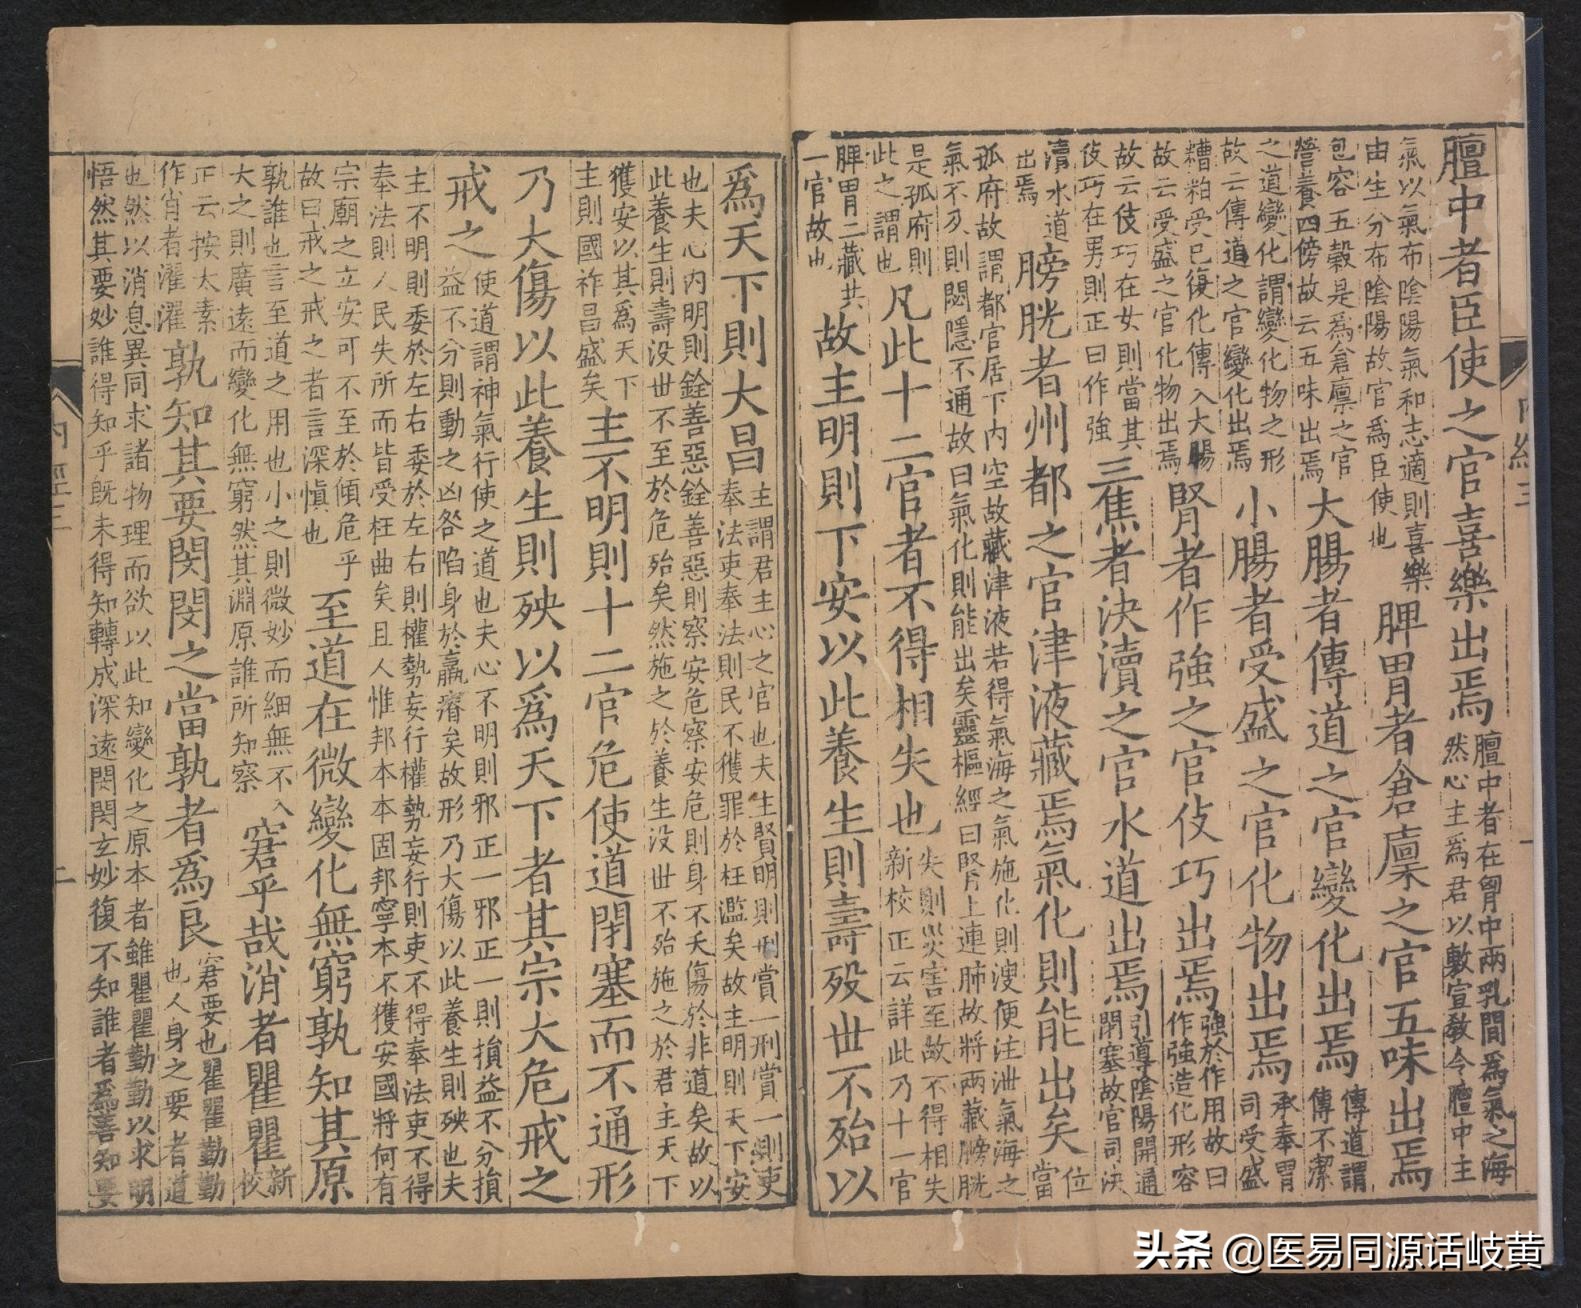 膻中者臣使之官喜樂出焉膻中者在胷中兩乳間爲氣之海然心主爲君以敷宣教令膻中主
氣以氣布陰陽氣和志適則喜樂由生分布陰陽故官爲臣使也脾胃者倉廩之官五味出焉
包容五穀是爲倉廩之官營養四傍故云五味出焉大腸者傳道之官變化出焉傳道謂傳不潔
之道變化謂變化物之形故云傳道之官變化出焉小腸者受盛之官化物出焉承奉胃司受盛
糟粕受已復化傳入大腸故云受盛之官化物出焉腎者作強之官伎巧出焉強於作用故曰作強造化形容
故云伎巧在女則當其伎巧在男則正曰作強三焦者決瀆之官水道出焉引導陰陽開通閉塞故官司決
瀆水道出焉膀胱者州都之官津液藏焉氣化則能出矣位當
孤府故謂都官居下内空故藏津液若得氣海之氣施化則溲便注泄氣海之氣不及則閟隱不通故曰氣化則能出矣靈樞經曰腎上連肺故將兩藏膀胱
是孤府則此之謂也凡此十二官者不得相失也失則災害至故不得相失新校正云詳此乃十一官
脾胃二藏共一官故也故主明則下安以此養生則壽殁世不殆以
内經三
爲天下則大昌主謂君主心之官也夫主賢明則刑賞一刑賞一則吏奉法吏奉法則民不獲罪於枉濫矣故主明則天下安
也夫心内明則銓善惡銓善惡則察安危察安危則身不夭傷於非道矣故以此養生則壽没世不至於危殆矣然施之於養生没世不殆施之於君主天下
獲安以其爲天下主則國祚昌盛矣主不明則十二官危使道閉塞而不通形
乃大傷以此養生則殃以爲天下者其宗大危戒之
戒之使道謂神氣行使之道也夫心不明則邪正一邪正一則損益不分損益不分則動之凶咎陷身於羸瘠矣故形乃大傷以此養生則殃也夫
主不明則委於左右委於左右則權勢妄行權勢妄行則吏不得奉法吏不得奉法則人民失所而皆受枉曲矣且人惟邦本本固邦寧本不獲安國將何有
宗廟之立安可不至於傾危乎故曰戒之戒之者言深慎也至道在微變化無窮孰知其原
孰誰也言至道之用也小之則微妙而細無不入大之則廣遠而變化無窮然其淵原誰所知察窘乎哉消者瞿瞿新校
正云按太素作肖者濯濯孰知其要閔閔之當孰者爲良窘要也瞿瞿勤勤也人身之要者道
也然以消息異同求諸物理而欲以此知變化之原本者雖瞿瞿勤勤以求明悟然其要妙誰得知乎既未得知轉成深遠閔閔玄妙復不知誰者爲善知要
内經三
二
头条 @医易同源话岐黄